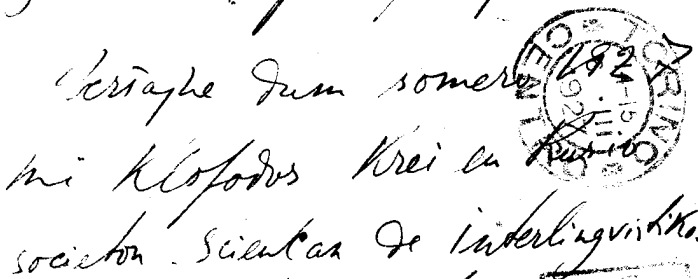 Verŝajne dum somero 1927
mi klopodos Krei en Rusio
societon scientan de interlingvistiko.
TORINO